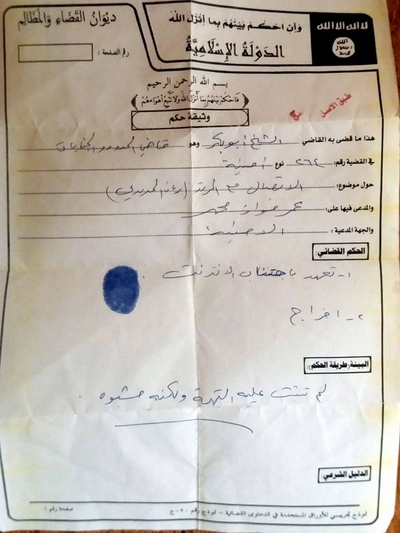 ديوان القضاء والمظالم
وأن احكم بينهم بما أنزل الله
الدولة الإسلامية
لا اله الا الله
الله
رسول
محمد
رقم الصفحة :
بسم الله الرحمن الرحيم
فاحكم بينهم بما أنزل الله ولا تتبع أهواءهم
وثيقة حكم
طبق الأصل
هذا ما قضى به القاضي : الشيخ ابو بكر وهو : قاضي الحدود والجنايات
في القضية رقم: ٢٦٤ نوع : امنية
حول موضوع: الاتصال مع المرتد
والمدعى فيها على: عمر فواز
والجهة المدعية : الامنية
الحكم القضائي:
١- تعهد باجتناب الانترنت .
٢- اخراج
البينة/طريقة الحكم:
لم تثبت عليه التهمة ولكنه مشبوه .
الدليل الشرعي:
نموذج تجريبي للأوراق المستخدمة في الدعاوى القضائية - نموذج رقم ٢٠-ج
صفحة رقم ١